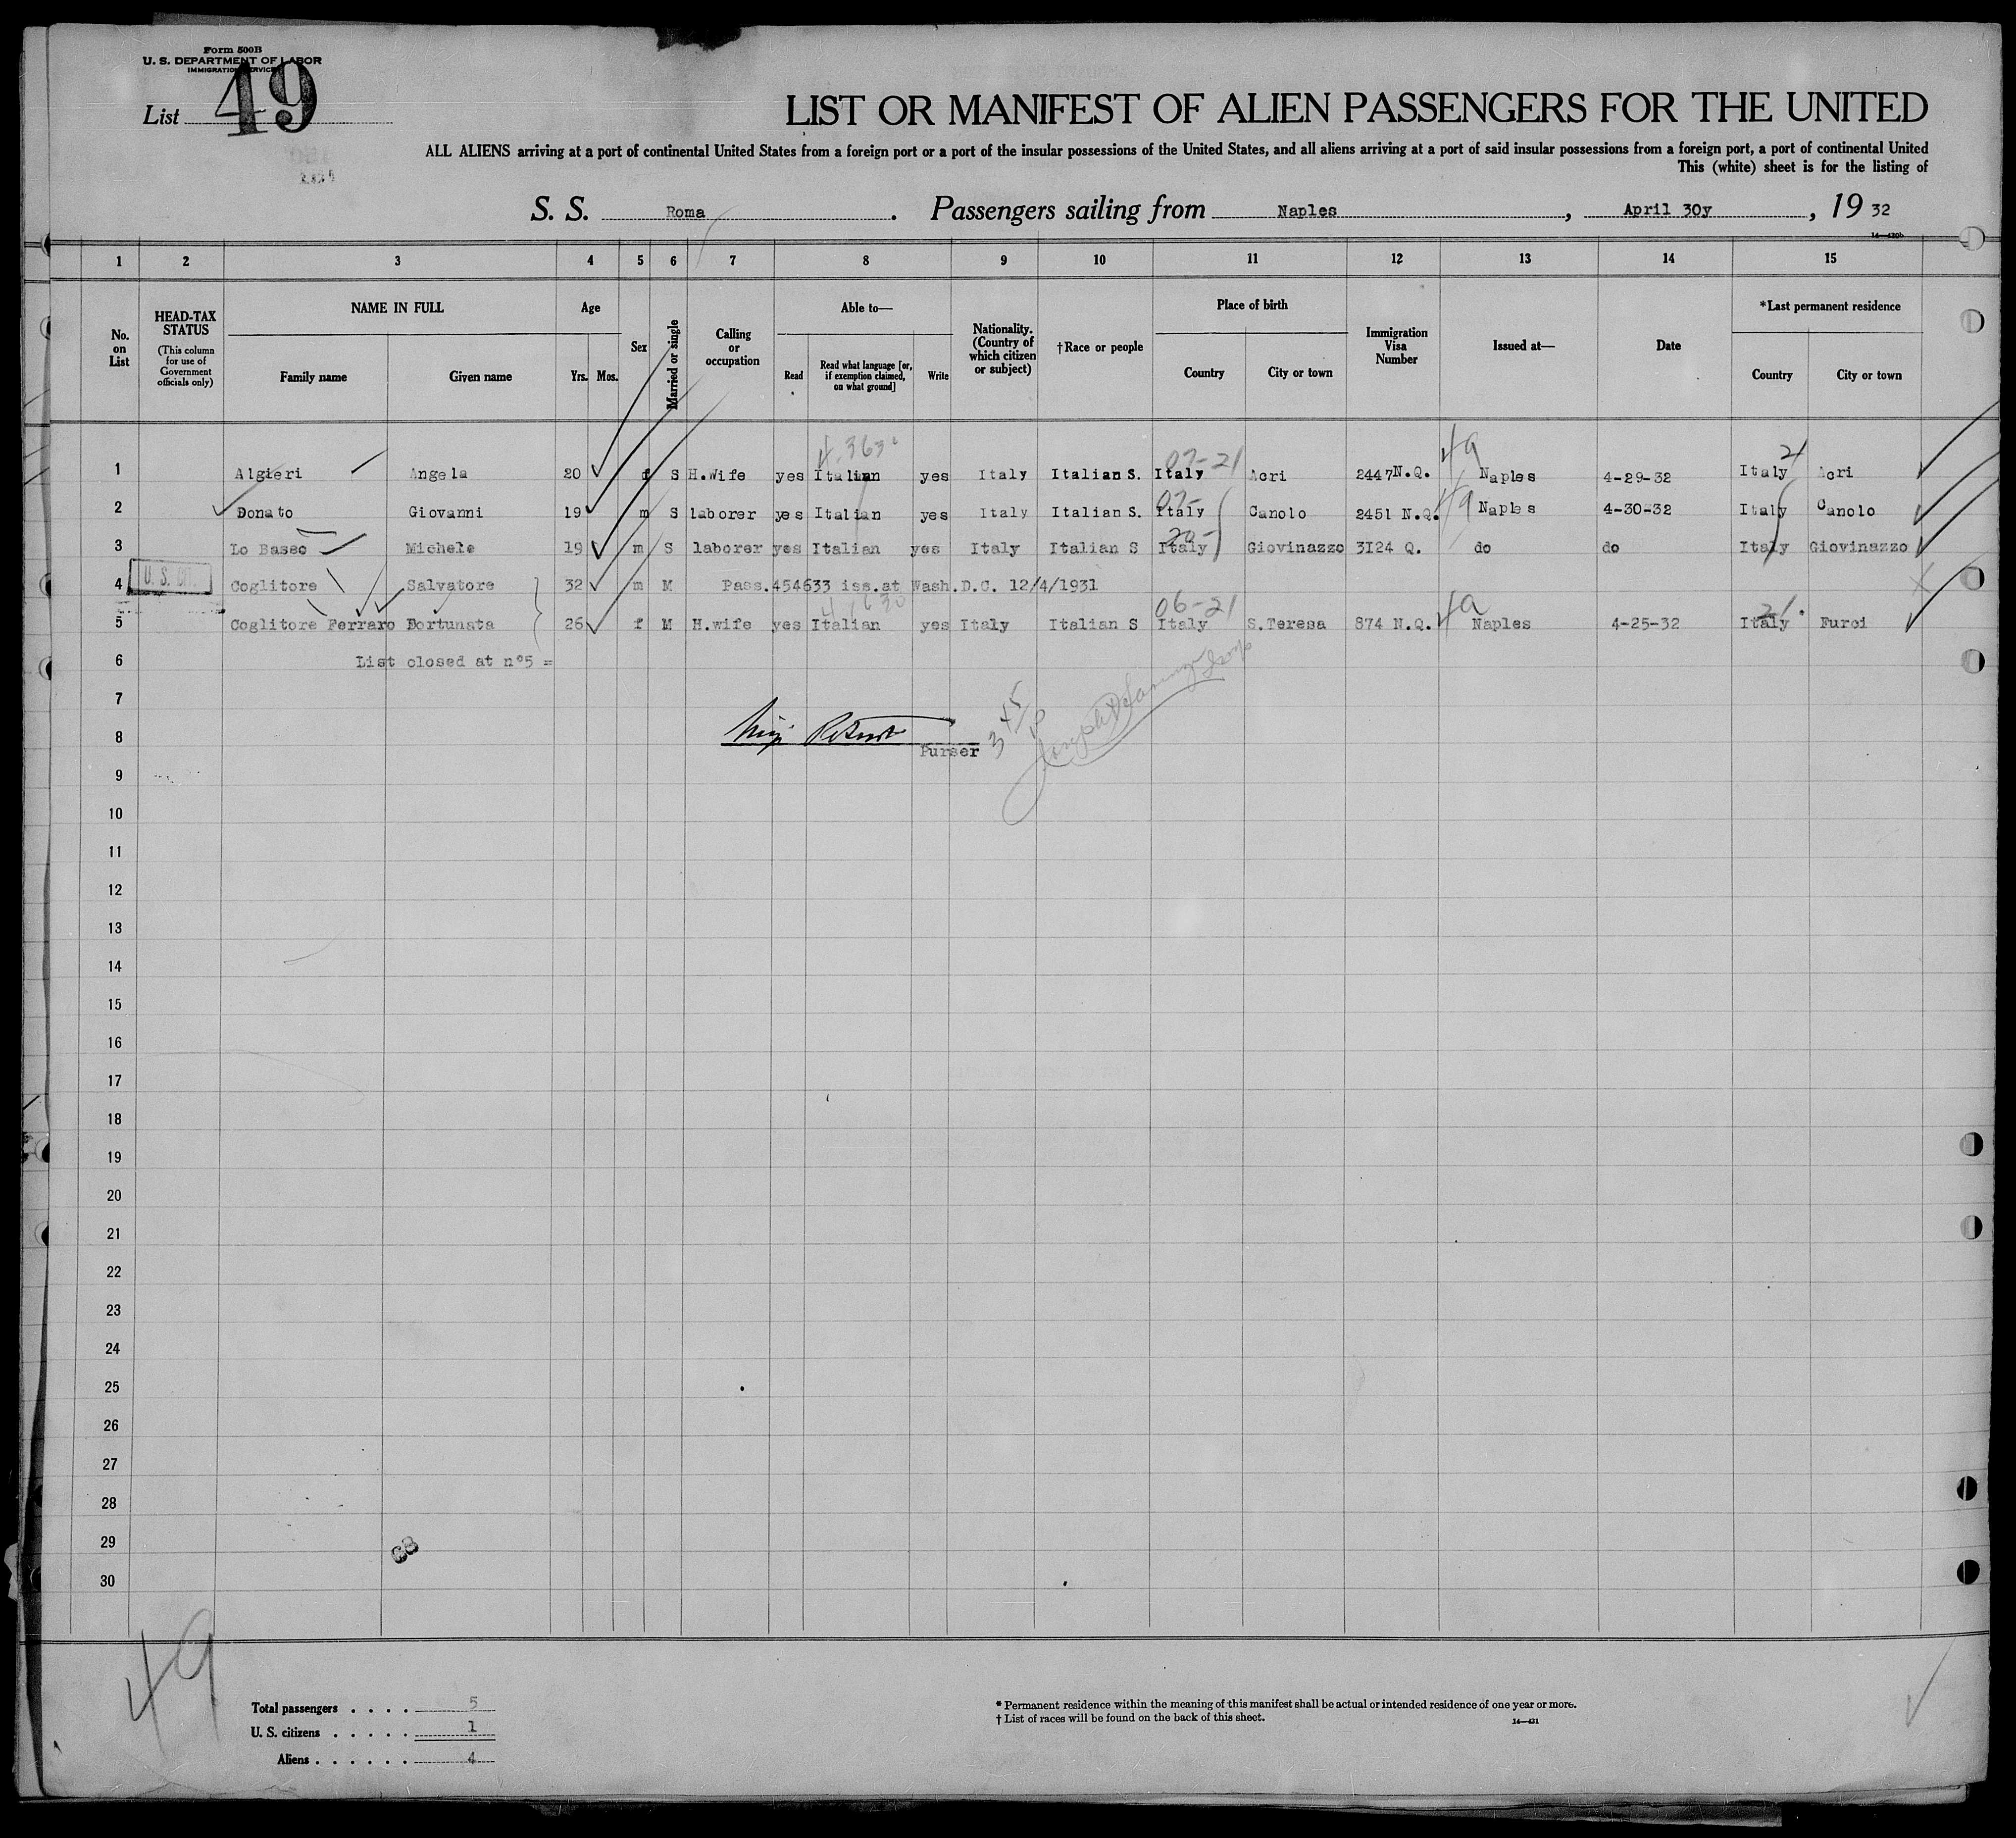 Form 500B
U. S. DEPARTMENT OF LABOR
IMMIGRATION SERVICE
List 49
LIST OR MANIFEST OF ALIEN PASSENGERS FOR THE UNITED
ALL ALIENS arriving at a port of continental United States from a foreign port or a port of the insular possessions of the United States, and all aliens arriving at a port of said insular possessions from a foreign port, a port of continental United
This (white) sheet is for the listing of
S. S. Roma. Passengers sailing from Naples, April 30y, 19 32
1 2 3 4 5 6 7 8 9 10 11 12 13 14 15
No. on List
HEAD-TAX STATUS (This column for use of Government officials only)
NAME IN FULL
Family name Given name
Age
Yrs. Mos.
Sex
Married or single
Calling or occupation
Able to—
Read Read what language [or, if exemption claimed, on what ground] Write
Nationality. (Country of which citizen or subject)
†Race or people
Place of birth
Country City or town
Immigration Visa Number
Issued at—
Date
*Last permanent residence
Country City or town
07-21 4a 21
1 Algieri Angela 20 f S H.Wife yes Italian yes Italy Italian S. Italy Acri 2447 N.Q. Naples 4-29-32 Italy Acri
07- 4a
2 Donato Giovanni 19 m S laborer yes Italian yes Italy Italian S. Italy Canolo 2451 N.Q. Naples 4-30-32 Italy Canolo
20-
3 Lo Basso Michele 19 m S laborer yes Italian yes Italy Italian S Italy Giovinazzo 3124 Q. do do Italy Giovinazzo
4 U.S. CIT. Coglitore Salvatore 32 m M Pass.454633 iss.at Wash.D.C. 12/4/1931
06-21 4a 21
5 Coglitore Ferraro Fortunata 26 f M H.wife yes Italian yes Italy Italian S Italy S.Teresa 874 N.Q. Naples 4-25-32 Italy Furci
6 List closed at n°5 =
7
8 Purser
9
10
11
12
13
14
15
16
17
18
19
20
21
22
23
24
25
26
27
28
29
30
68
49
Total passengers . . . . 5
U. S. citizens . . . . . 1
Aliens . . . . . . 4
* Permanent residence within the meaning of this manifest shall be actual or intended residence of one year or more.
† List of races will be found on the back of this sheet.
14—431